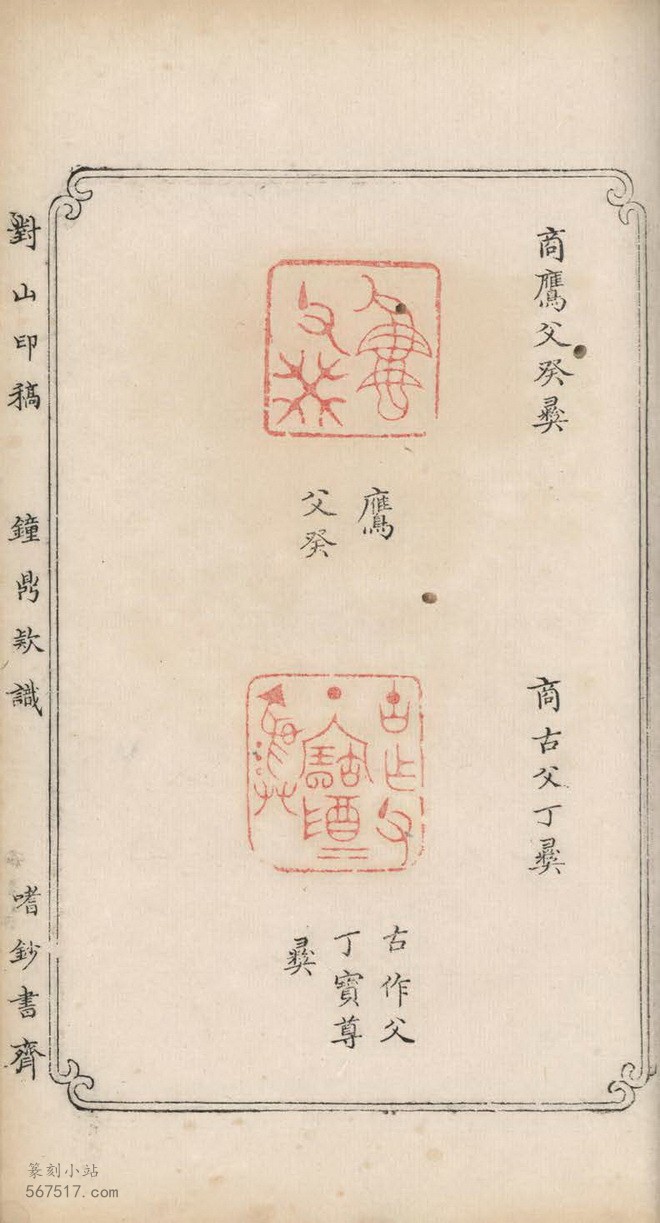 商鷹父癸彝
鷹
父癸
商古父丁彝
古作父
丁寶尊
彝
對山印稿 鐘鼎欵識 嗜鈔書齊
篆刻小站
567517.com